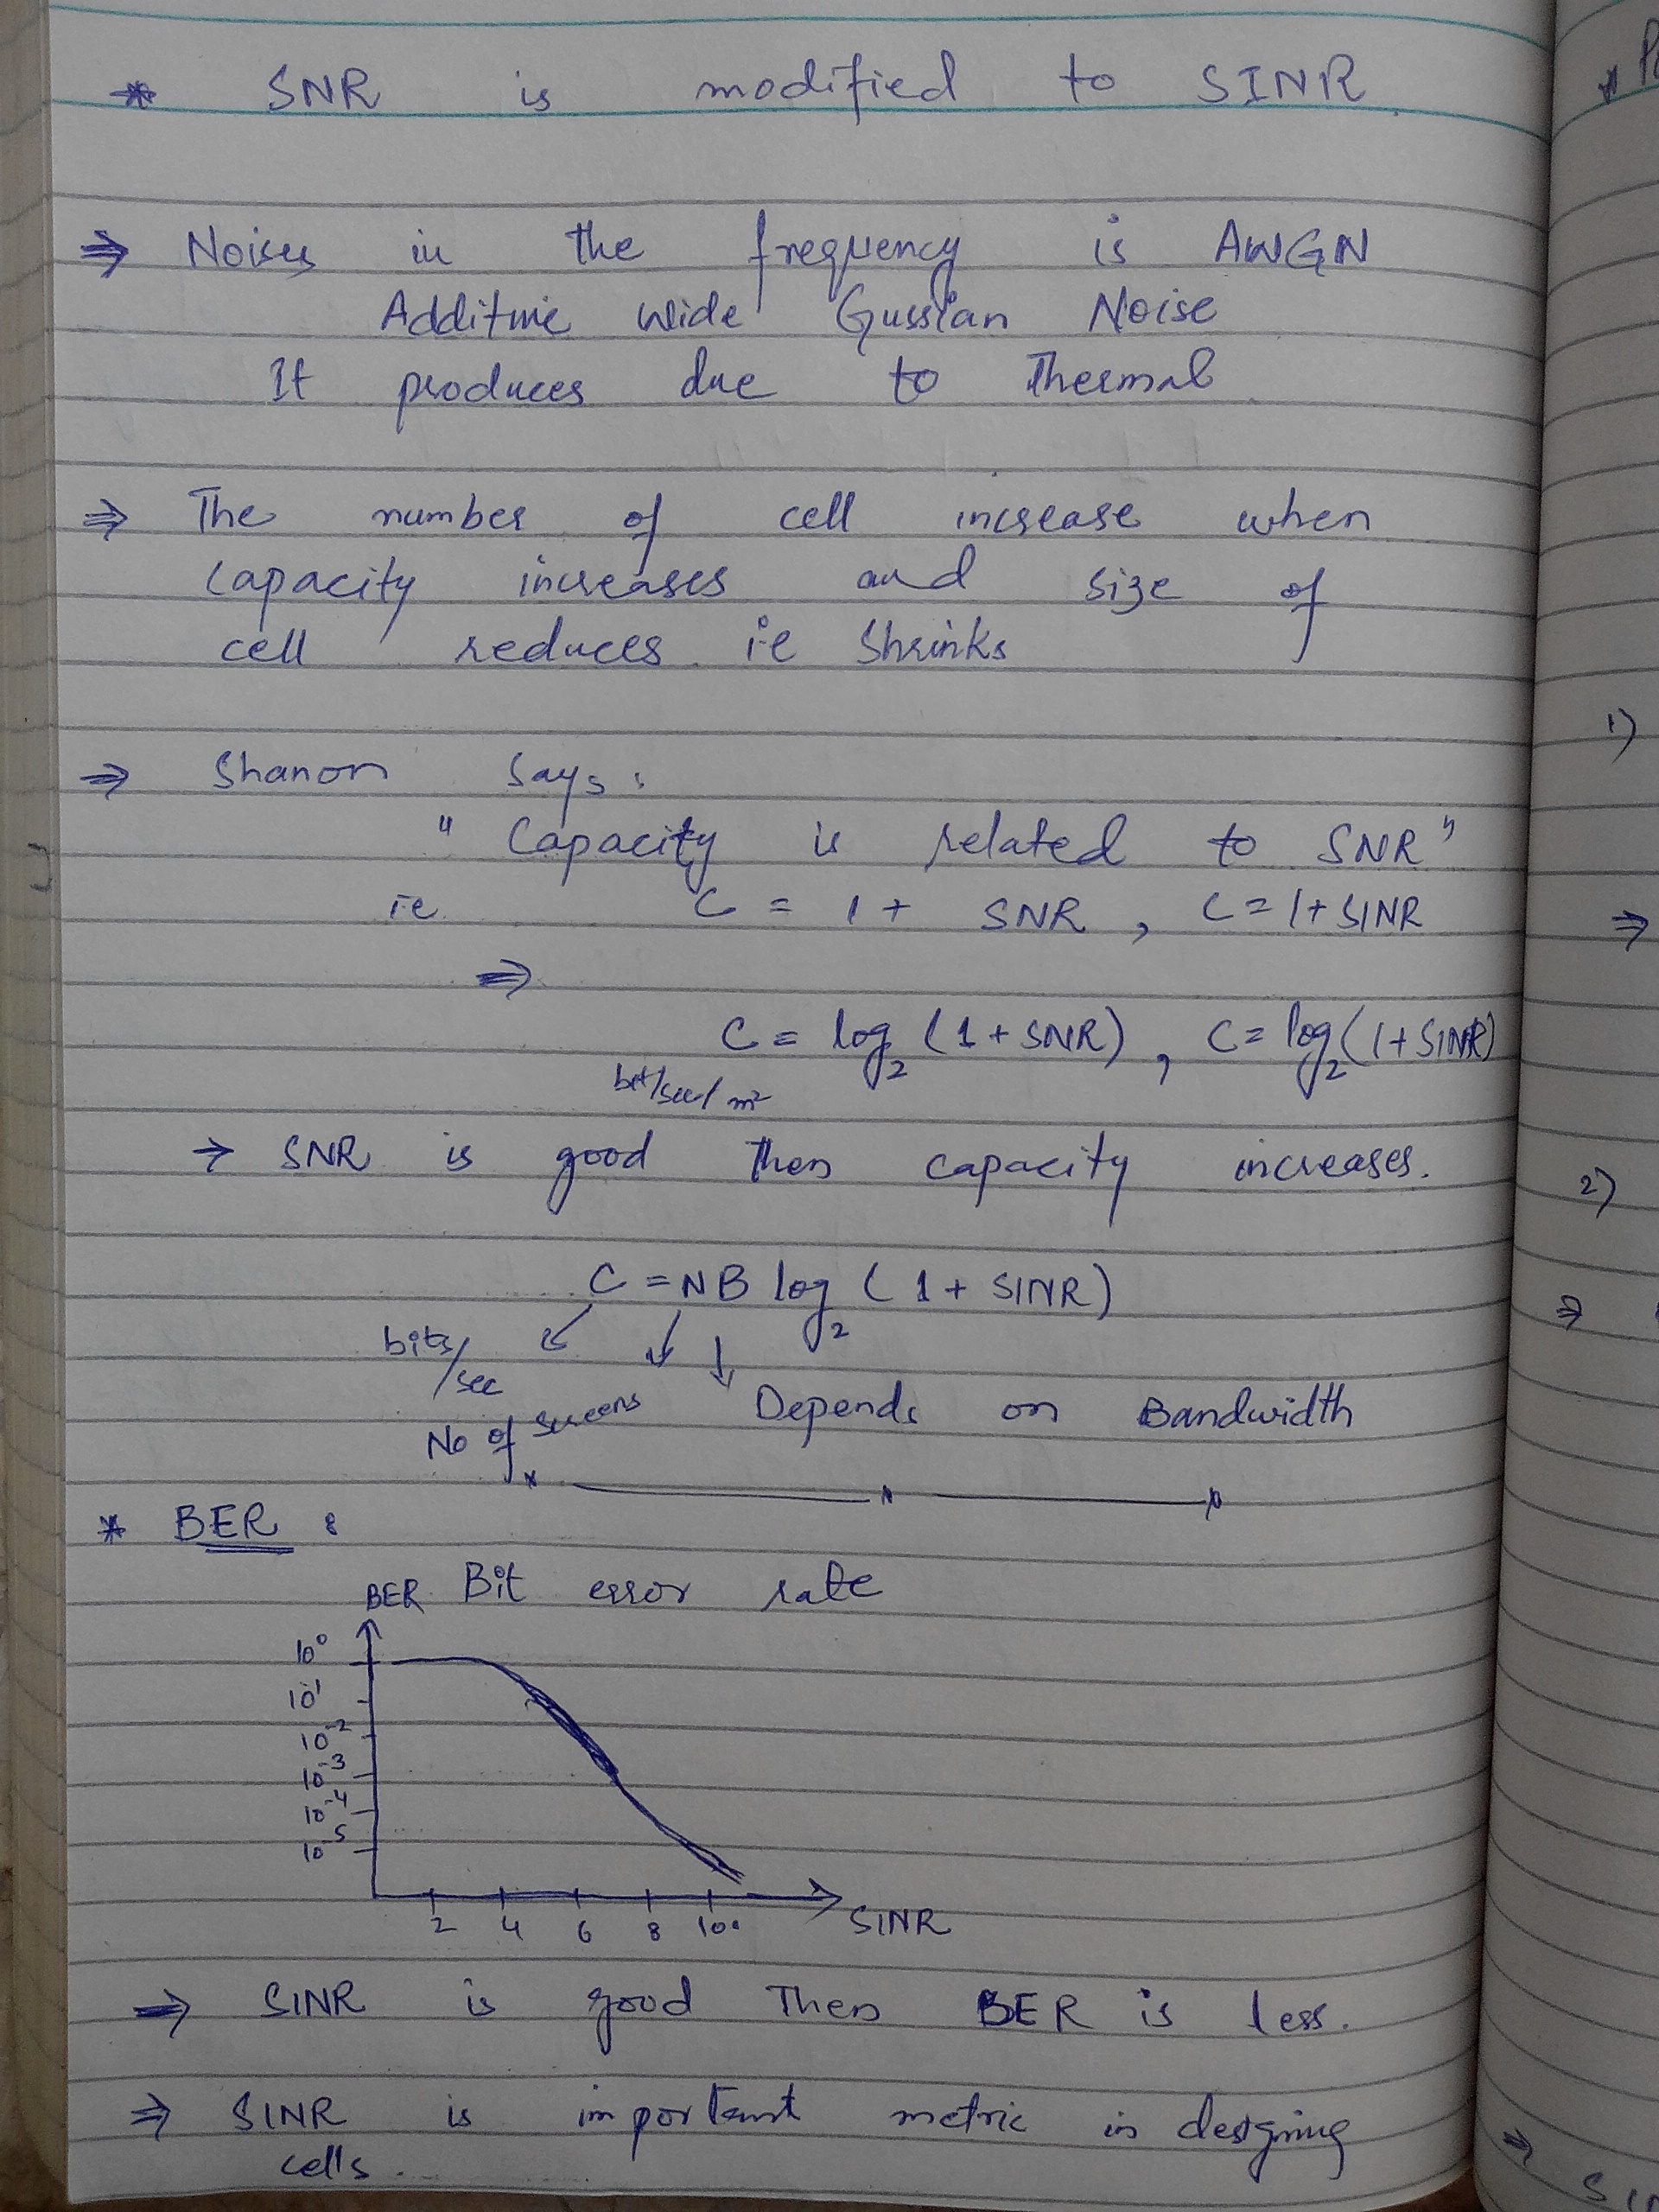 * SNR is modified to SINR
⇒ Noises in the frequency is AWGN
Additive wide Gussian Noise
It produces due to Thermal
⇒ The number of cell increase when
capacity increases and size of
cell reduces. i.e Shrinks
⇒ Shanon Says:
" Capacity is related to SNR "
i.e. C = 1 + SNR , C = 1 + SINR
⇒
C = log₂ (1 + SNR) , C = log₂ (1 + SINR)
bit/sec/m²
→ SNR is good then capacity increases.
C = NB log₂ (1 + SINR)
bits/sec
No of screens
Depends on Bandwidth
* BER :
BER Bit error rate
10⁰
10¹
10⁻²
10⁻³
10⁻⁴
10⁻⁵
2 4 6 8 10 SINR
⇒ SINR is good Then BER is less.
⇒ SINR is important metric in designing
cells.
1)
⇒
2)
⇒
⇒